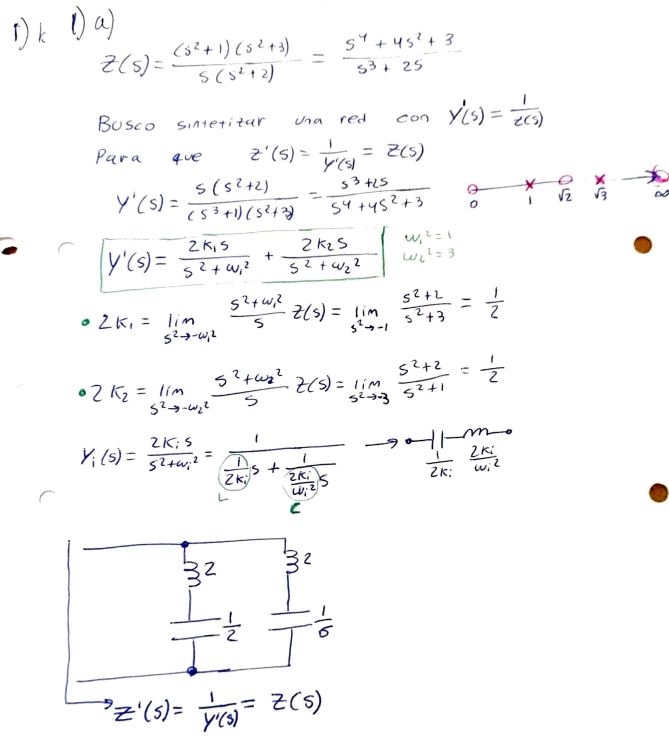 1) k 1) a)
Z(s) = (s²+1)(s²+3) / s(s²+2) = s⁴+4s²+3 / s³+2s
Busco sintetizar una red con Y'(s) = 1/Z(s)
Para que Z'(s) = 1/Y'(s) = Z(s)
Y'(s) = s(s²+2) / (s³+1)(s²+3) = s³+2s / s⁴+4s²+3
0 1 √2 √3 ∞
Y'(s) = 2k₁s / s²+ω₁² + 2k₂s / s²+ω₂² ω₁²=1
ω₂²=3
• 2k₁ = lim s²→-ω₁² s²+ω₁² / s Z(s) = lim s²→-1 s²+2 / s²+3 = 1/2
• 2k₂ = lim s²→-ω₂² s²+ω₂² / s Z(s) = lim s²→-3 s²+2 / s²+1 = 1/2
Yᵢ(s) = 2kᵢs / s²+ωᵢ² = 1 / (1/2kᵢ s + 1 / (2kᵢ/ωᵢ² s)) → 1/2kᵢ 2kᵢ/ωᵢ²
L C
2 2
1/2 1/6
Z'(s) = 1/Y'(s) = Z(s)